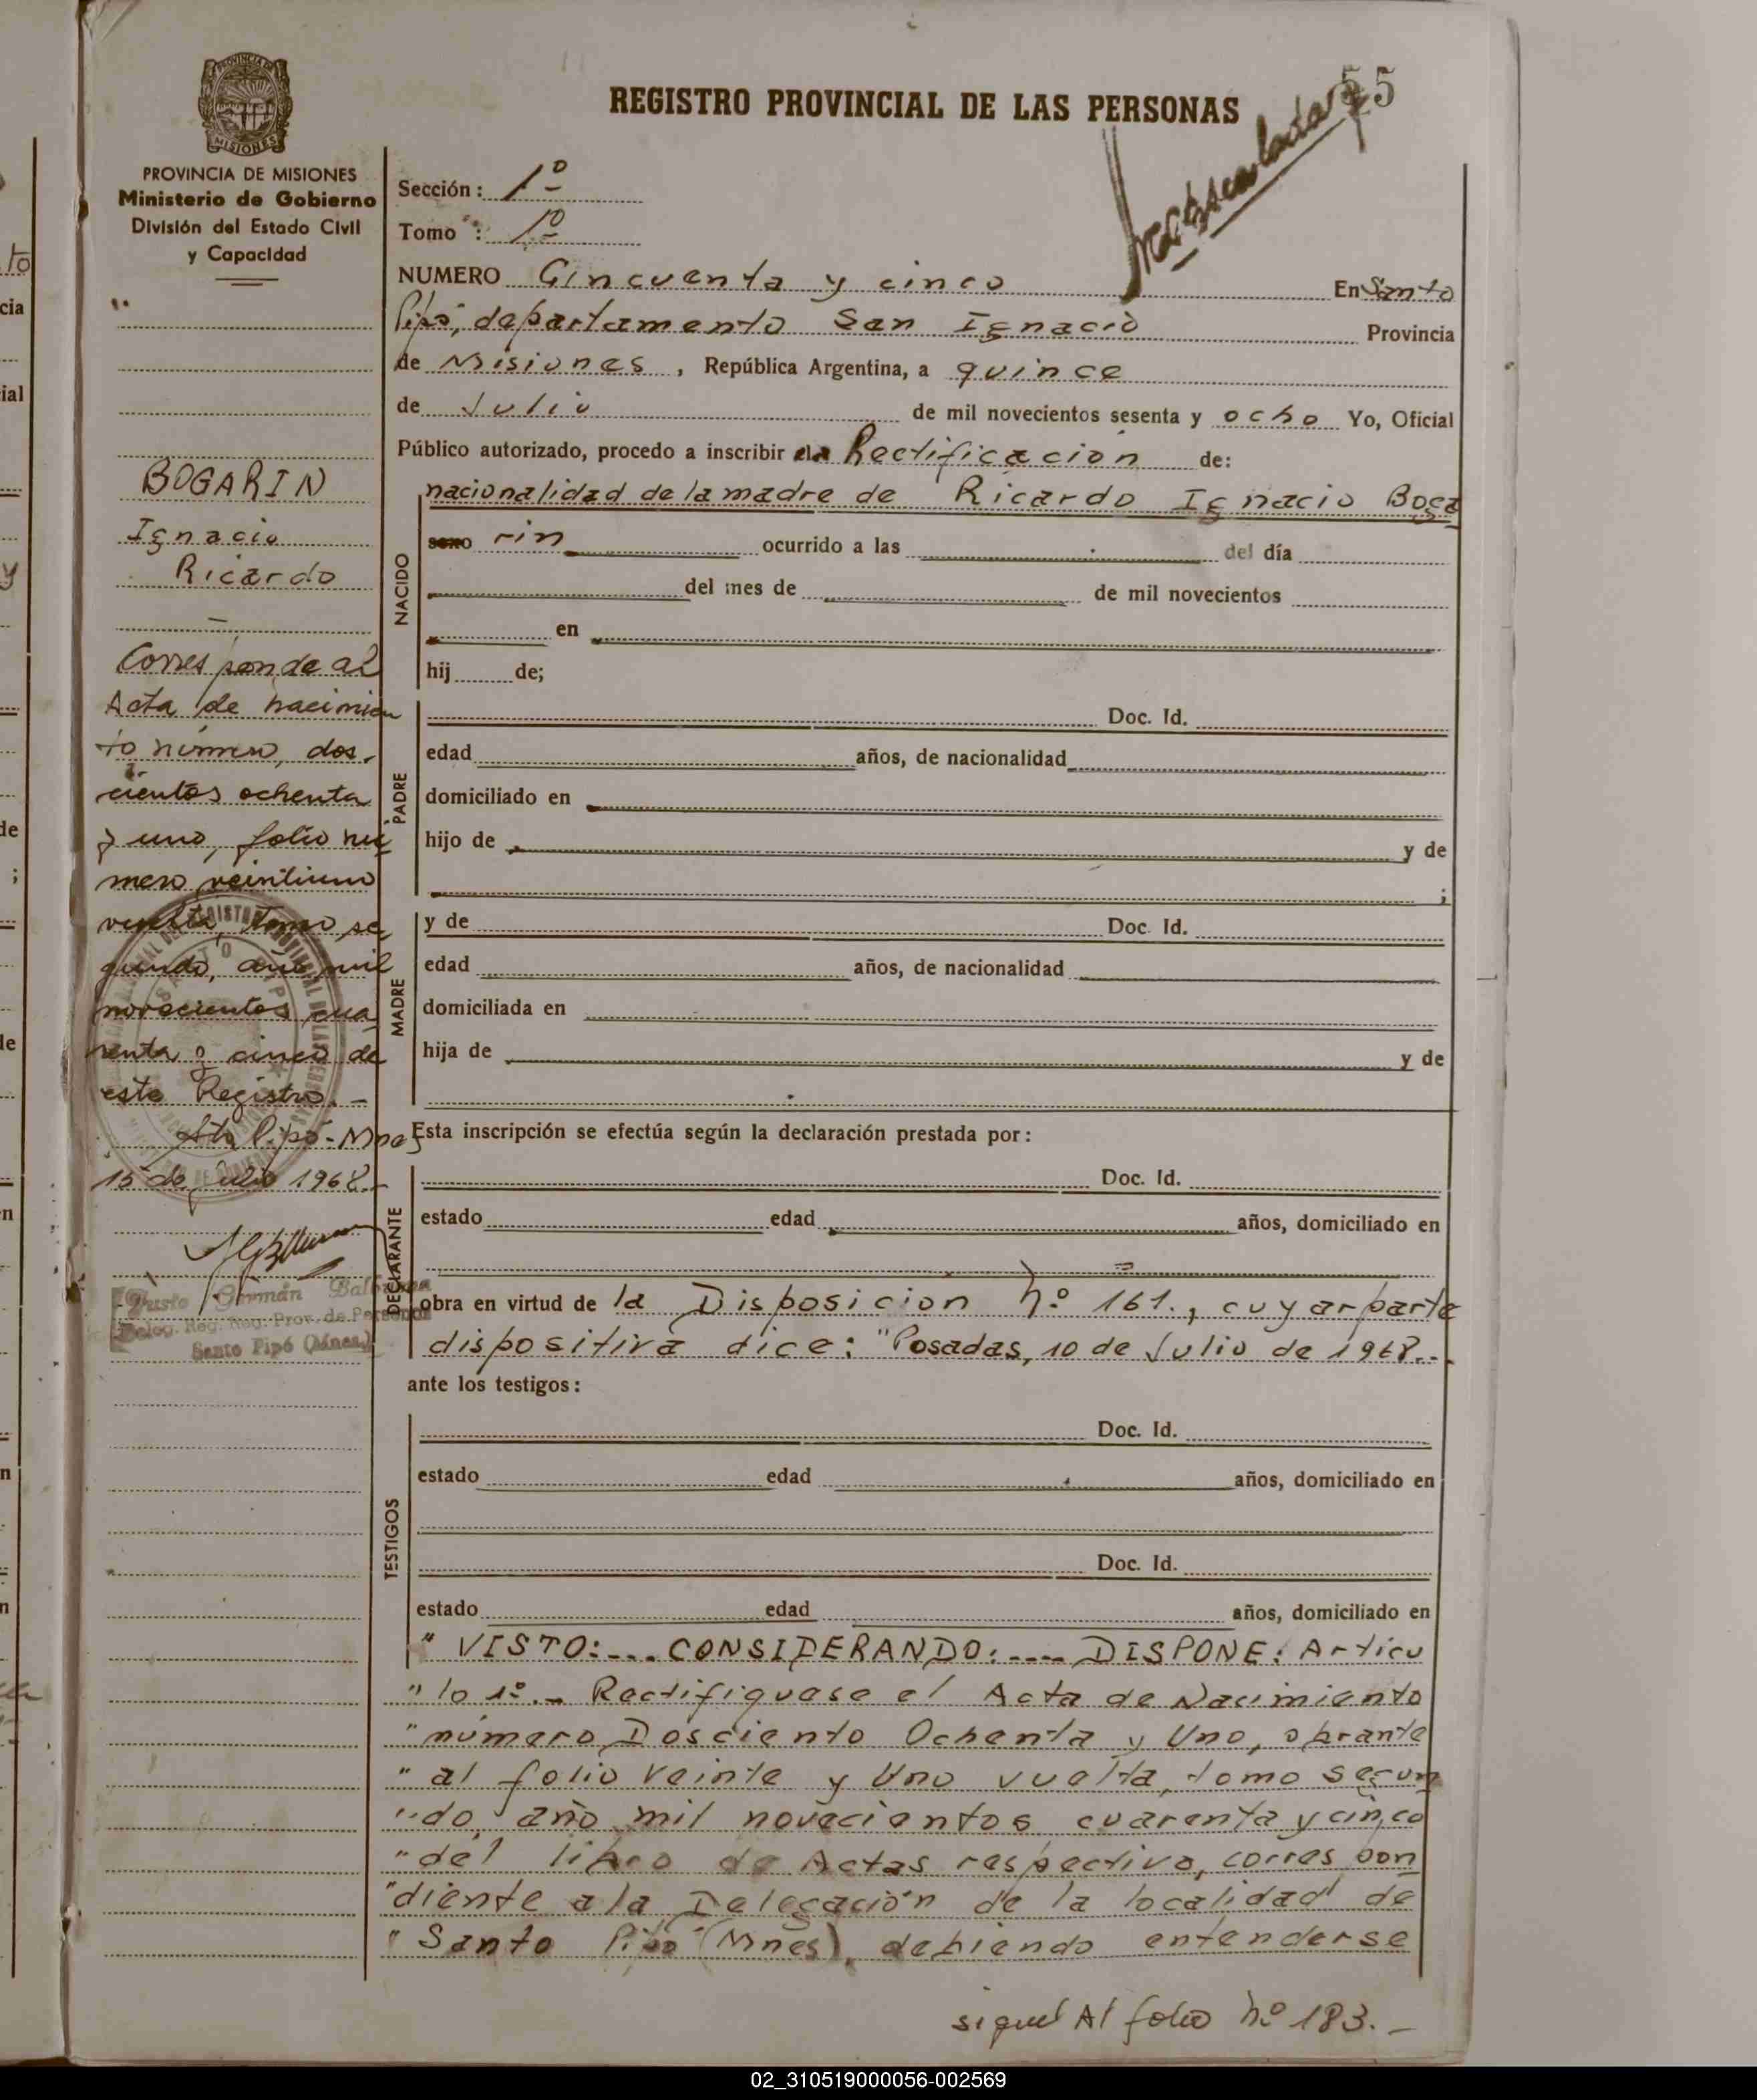 REGISTRO PROVINCIAL DE LAS PERSONAS
55
PROVINCIA DE MISIONES
Ministerio de Gobierno
División del Estado Civil
y Capacidad
BOGARIN
Ignacio
Ricardo
Corresponde al
Acta de nacimien
to número, dos-
cientos ochenta
y uno, folio nú
mero veintiuno
vuelta, tomo se
gundo, año mil
novecientos cua
renta y cinco de
este Registro. -
Sto Pipó - Mnes
15 de Julio 1968.-
Justo Germán
Deleg. Reg. Prov. de Personas
Santo Pipó (Mnes.)
Sección: 1º
Tomo : 1º
NUMERO Cincuenta y cinco En Santo
Pipó, departamento San Ignacio Provincia
de Misiones, República Argentina, a quince
de Julio de mil novecientos sesenta y ocho Yo, Oficial
Público autorizado, procedo a inscribir la Rectificación de:
NACIDO
nacionalidad de la madre de Ricardo Ignacio Boga
sexo rin ocurrido a las del día
del mes de de mil novecientos
en
hij de;
PADRE
Doc. Id.
edad años, de nacionalidad
domiciliado en
hijo de y de
;
MADRE
y de Doc. Id.
edad años, de nacionalidad
domiciliada en
hija de y de
Esta inscripción se efectúa según la declaración prestada por:
DECLARANTE
Doc. Id.
estado edad años, domiciliado en
obra en virtud de la Disposicion Nº 161., cuyar parte
dispositiva dice: "Posadas, 10 de Julio de 1968.-
ante los testigos:
TESTIGOS
Doc. Id.
estado edad años, domiciliado en
Doc. Id.
estado edad años, domiciliado en
" VISTO:... CONSIDERANDO:.... DISPONE: Articu
" lo 1º.- Rectifiquese el Acta de Nacimiento
" número Dosciento Ochenta y Uno, obrante
" al folio veinte y Uno vuelta, tomo segun
" do, año mil novecientos cuarenta y cinco
" del libro de Actas respectivo, corres pon
" diente a la Delegación de la localidad de
" Santo Pipó (Mnes), debiendo entenderse
sigue Al folio Nº 183.-
02_310519000056-002569